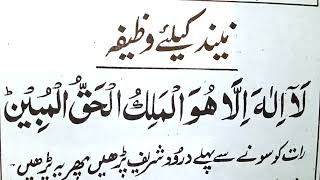 نیند کیلئے وظیفہ
لَآ اِلٰهَ اِلَّا هُوَ الْمَلِكُ الْحَقُّ الْمُبِيْنُ
رات کو سونے سے پہلے درود شریف پڑھیں پھر یہ پڑھیں